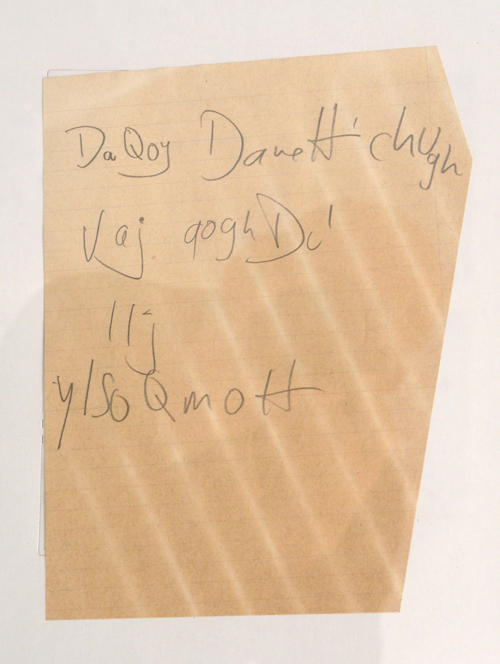 DaQoy DaneH'chUgh
Vaj qoghDu'
lIj
yISoQmoH